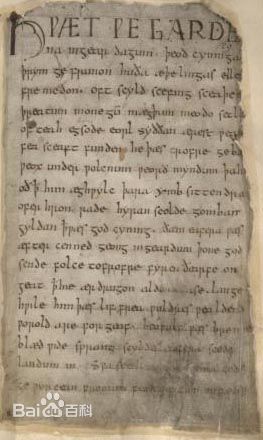 HǷÆT ǷE GARDE
na ingear dagum. þeod cyninga
þrym ge frunon huða æþelingas elle
fremedon. oft scyld scefing sceaþe
þreatum monegū mægþum meodo setla
of teah egsode eorl syððan ærest ƿear
fea sceaft funden he þæs frofre geba
ƿeox under ƿolcnum ƿeorð myndum þah
oð ꝥ him æghƿylc þara ymb sittendra
ofer hron rade hyran scolde gomban
gyldan ꝥ ƿæs god cyning. ðæm eafera ƿæs
æfter cenned geong ingeardum þone god
sende folce tofrofre fyren ðearfe on
geat ꝥ hie ær drugon aldor ase. lange
hƿile him þæs lif frea ƿuldres ƿealdend
ƿorold are for geaf. beoƿulf ƿæs breme
blæd ƿide sprang scyldes eafera scede
landum in. Sƿa sceal uma gode
ge ƿyrcean fromum feoh giftum
Bai百科